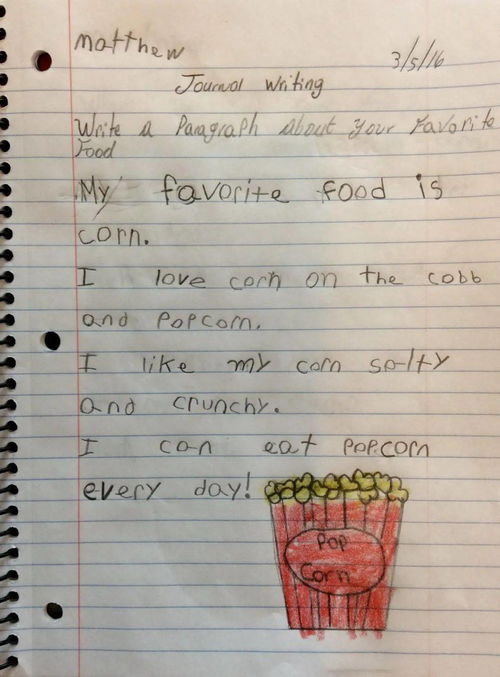 matthew
3/5/16
Journal Writing
Write a Paragraph about Your Favorite
Food
My favorite food is
corn.
I love corn on the cobb
and popcorn.
I like my corn salty
and crunchy.
I can eat popcorn
every day!
Pop
Corn